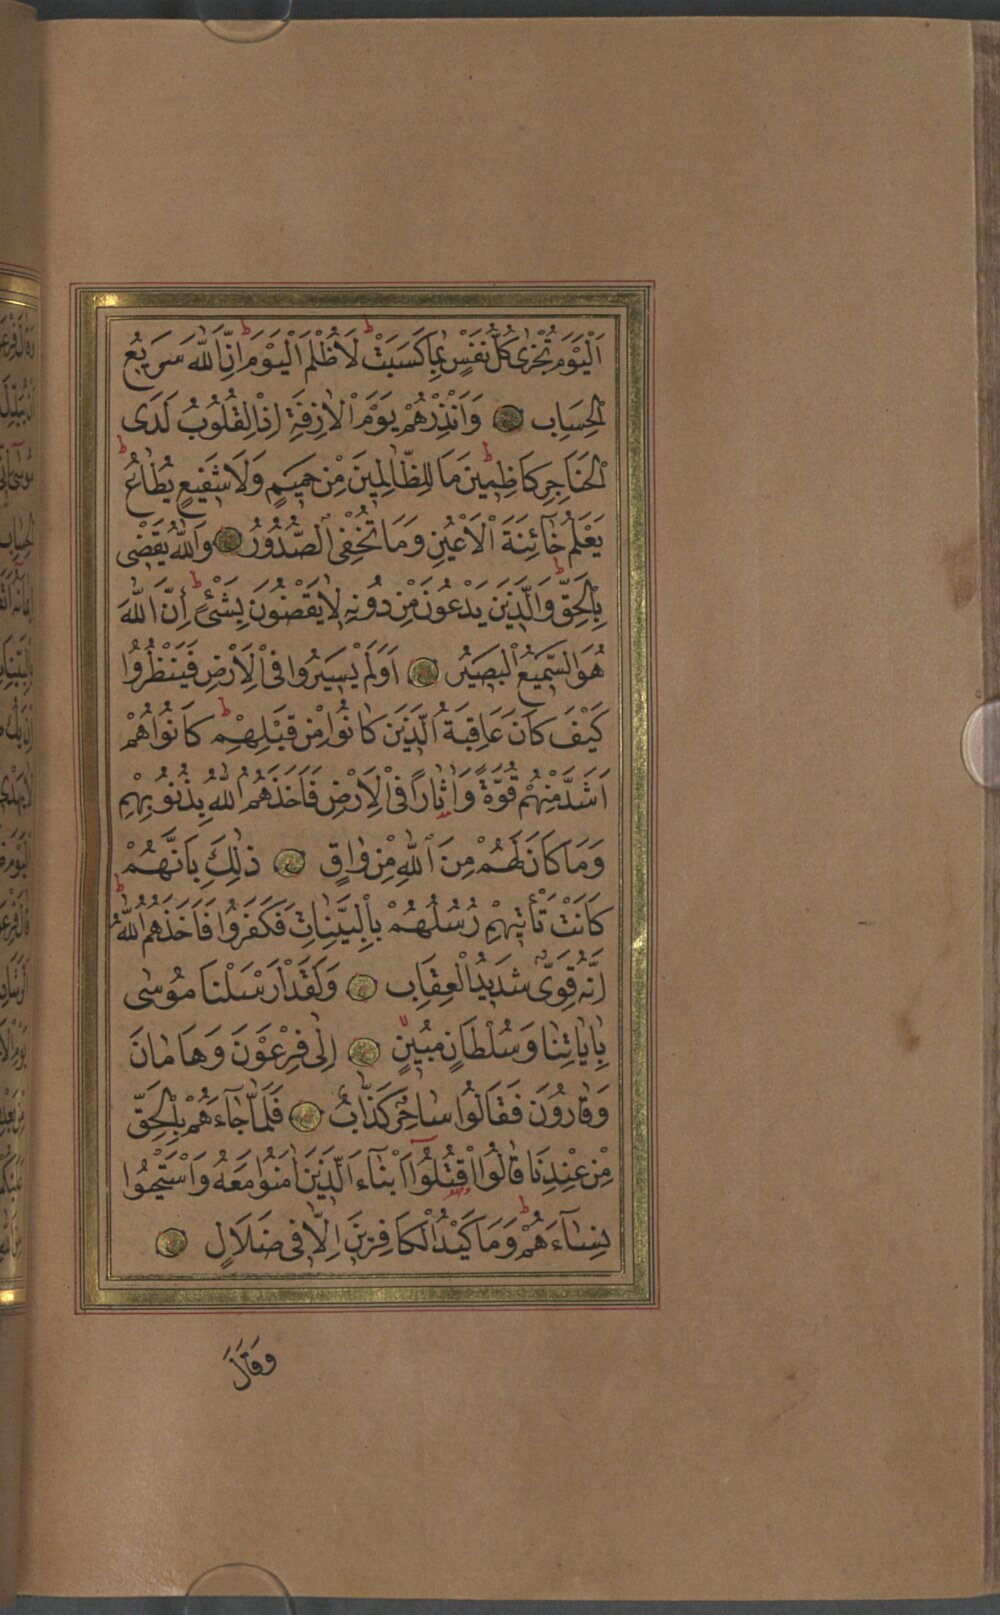 اَلْيَوْمَ تُجْزٰى كُلُّ نَفْسٍ بِمَا كَسَبَتْ ط لَا ظُلْمَ الْيَوْمَ ط اِنَّ اللّٰهَ سَرِيعُ
الْحِسَابِ ۝ وَاَنْذِرْهُمْ يَوْمَ الْاٰزِفَةِ اِذِ الْقُلُوبُ لَدَى
الْحَنَاجِرِ كَاظِمِينَ ط مَا لِلظَّالِمِينَ مِنْ حَمِيمٍ وَلَا شَفِيعٍ يُطَاعُ ط
يَعْلَمُ خَٓائِنَةَ الْاَعْيُنِ وَمَا تُخْفِى الصُّدُورُ ۝ وَاللّٰهُ يَقْضِى
بِالْحَقِّ ط وَالَّذِينَ يَدْعُونَ مِنْ دُونِهِ لَا يَقْضُونَ بِشَىْءٍ ط اِنَّ اللّٰهَ
هُوَ السَّمِيعُ الْبَصِيرُ ۝ اَوَلَمْ يَسِيرُوا فِى الْاَرْضِ فَيَنْظُرُوا
كَيْفَ كَانَ عَاقِبَةُ الَّذِينَ كَانُوا مِنْ قَبْلِهِمْ ط كَانُوا هُمْ
اَشَدَّ مِنْهُمْ قُوَّةً وَاٰثَارًا فِى الْاَرْضِ فَاَخَذَهُمُ اللّٰهُ بِذُنُوبِهِمْ
وَمَا كَانَ لَهُمْ مِنَ اللّٰهِ مِنْ وَاقٍ ۝ ذٰلِكَ بِاَنَّهُمْ
كَانَتْ تَأْتِيهِمْ رُسُلُهُمْ بِالْبَيِّنَاتِ فَكَفَرُوا فَاَخَذَهُمُ اللّٰهُ ط
اِنَّهُ قَوِىٌّ شَدِيدُ الْعِقَابِ ۝ وَلَقَدْ اَرْسَلْنَا مُوسٰى
بِاٰيَاتِنَا وَسُلْطَانٍ مُبِينٍ ۝ اِلٰى فِرْعَوْنَ وَهَامَانَ
وَقَارُونَ فَقَالُوا سَاحِرٌ كَذَّابٌ ۝ فَلَمَّا جَٓاءَهُمْ بِالْحَقِّ
مِنْ عِنْدِنَا قَالُوا اقْتُلُٓوا اَبْنَٓاءَ الَّذِينَ اٰمَنُوا مَعَهُ وَاسْتَحْيُوا
نِسَٓاءَهُمْ ط وَمَا كَيْدُ الْكَافِرِينَ اِلَّا فِى ضَلَالٍ ۝
وَقَالَ